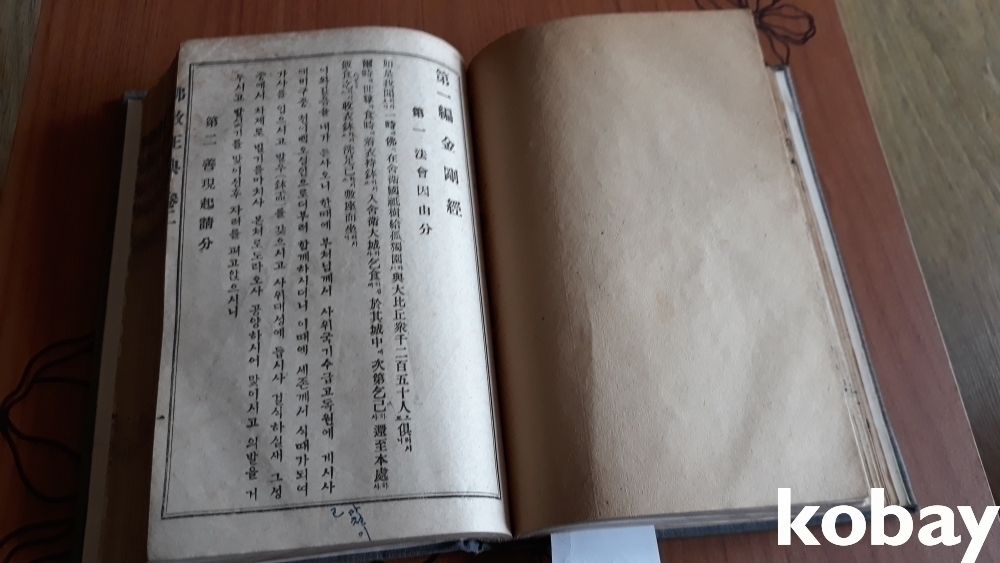 第一編 金剛經
第一 法會因由分
如是我聞 一時 佛 在舍衛國祇樹給孤獨園 與大比丘衆千二百五十人 俱
爾時 世尊 食時 着衣持鉢 入舍衛大城 乞食 於其城中 次第乞已 還至本處
飯食訖 收衣鉢 洗足已 敷座而坐
이와같음을 내가 듣사오니 한때에 부처님께서 사위국기수급고독원에 게시사
대비구중 천이백오십인으로더부러 함께하시더니 이때에 세존께서 식때가되여
가사를 입으시고 발우(鉢盂)를 갖으시고 사위대성에 들시사 걸식하실새 그성
중에서 차제로 빌기를마치사 본처로도라오사 공양하시어 맟이시고 의발을 거
두시고 발씿기를 맟이신후 자리를 펴고앉으시니
第二 善現起請分
佛教正典 卷一
kobay